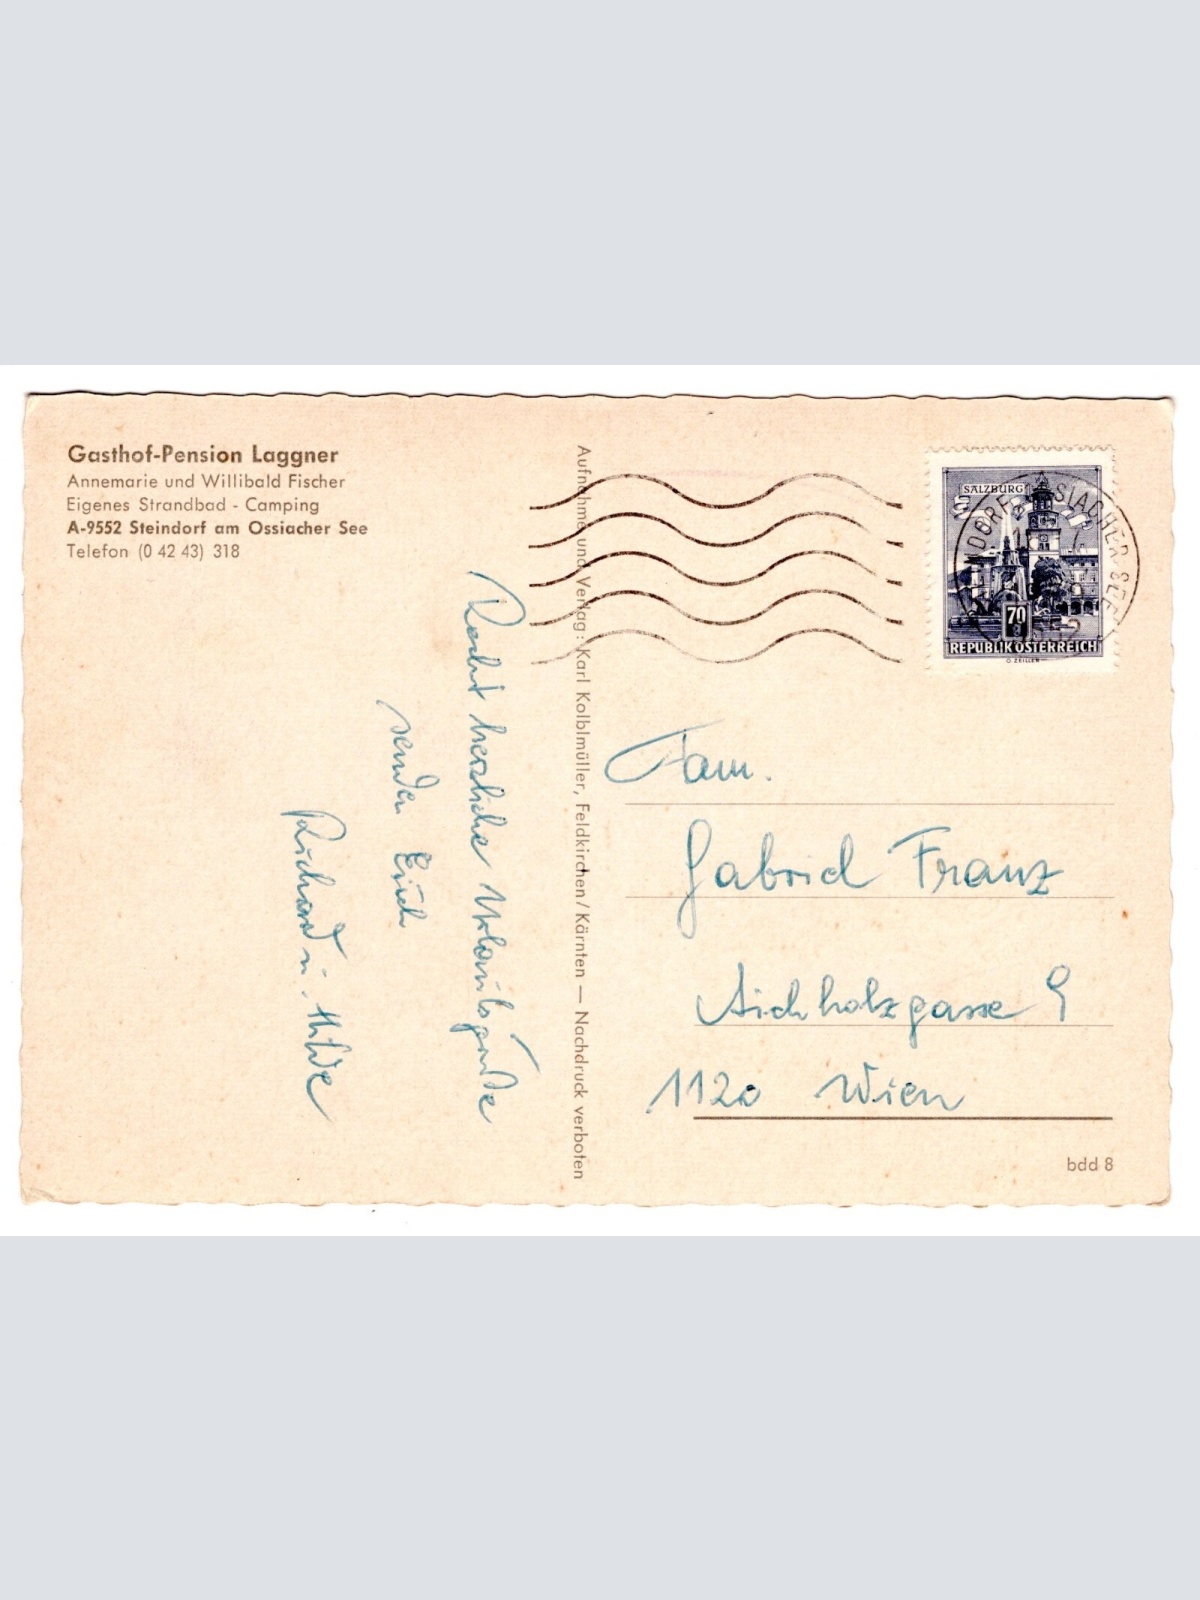 Gasthof-Pension Laggner
Annemarie und Willibald Fischer
Eigenes Strandbad - Camping
A-9552 Steindorf am Ossiacher See
Telefon (0 42 43) 318
Recht herzliche Urlaubsgrüße
senden Euch
Richard u. Hilde
Aufnahme und Verlag: Karl Kolblmüller, Feldkirchen/Kärnten — Nachdruck verboten
SALZBURG
70
REPUBLIK ÖSTERREICH
O. ZEILLER
OSSIACHER SEE
9552
Fam.
Gabriel Franz
Aichholzgasse 9
1120 Wien
bdd 8